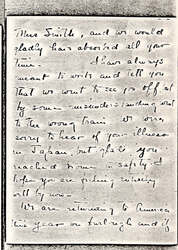 Miss Smith, and we would
gladly have absorbed all your
time. I have always
meant to write and tell you
that we went to see you off at
by some misunderstanding went
to the wrong train. We were
sorry to hear of your illness
in Japan but glad you
reached home safely. I
hope you are quite
well by now.
We are returning to America
this year on furlough and if